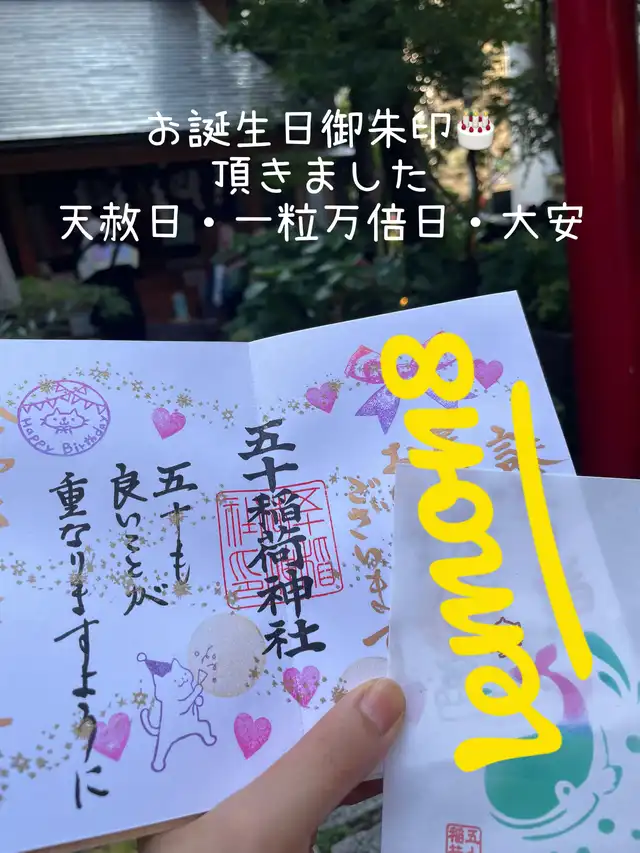 お誕生日御朱印🎂
頂きました
天赦日・一粒万倍日・大安
ございま
五十稲荷神社
五十も
良いことが
重なりますように
Happy Birthday